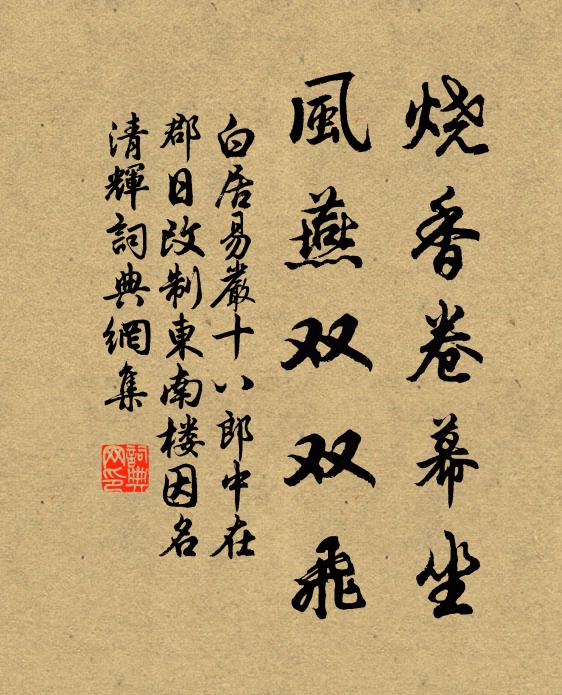 烧香卷幕坐
風燕双双飛
白居易嚴十八郎中在
郡日改制東南楼因名
清輝詞典網集
詞典
网印